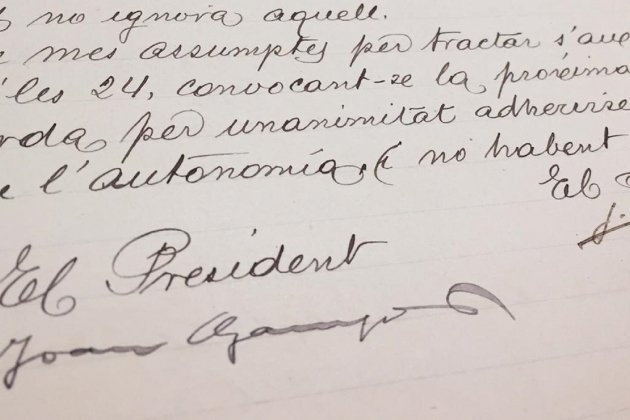 no ignora aquell.
mes assumptes per tractar s'aixe
les 24, convocant-se la próxima
rda per unanimitat adherirse
l'autonomía, i no habent
El
El President
Joan Gamper